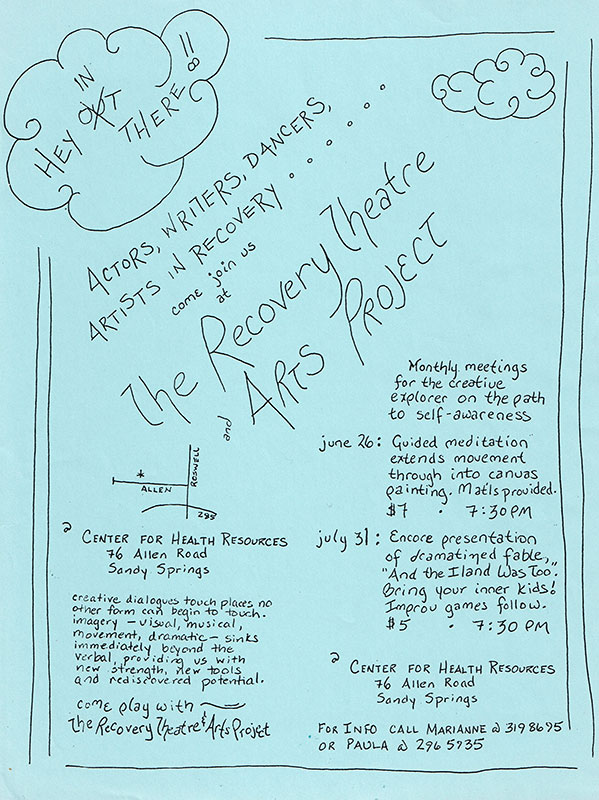 HEY IN OUT THERE!!
ACTORS, WRITERS, DANCERS,
ARTISTS IN RECOVERY . . . . . .
come join us
at
The Recovery Theatre
and ARTS PROJECT
Monthly meetings
for the creative
explorer on the path
to self-awareness
june 26: Guided meditation
extends movement
through into canvas
painting. Mat'ls provided.
$7 · 7:30 PM
july 31: Encore presentation
of dramatized fable,
"And the Iland Was Too."
Bring your inner kids!
Improv games follow.
$5 · 7:30 PM
@ CENTER FOR HEALTH RESOURCES
76 Allen Road
Sandy Springs
FOR INFO CALL MARIANNE @ 319 8695
OR PAULA @ 296 5735
*
ALLEN
ROSWELL
285
@ CENTER FOR HEALTH RESOURCES
76 Allen Road
Sandy Springs
creative dialogues touch places no
other form can begin to touch.
imagery – visual, musical,
movement, dramatic – sinks
immediately beyond the
verbal, providing us with
new strength, new tools
and rediscovered potential.
come play with
The Recovery Theatre & Arts Project